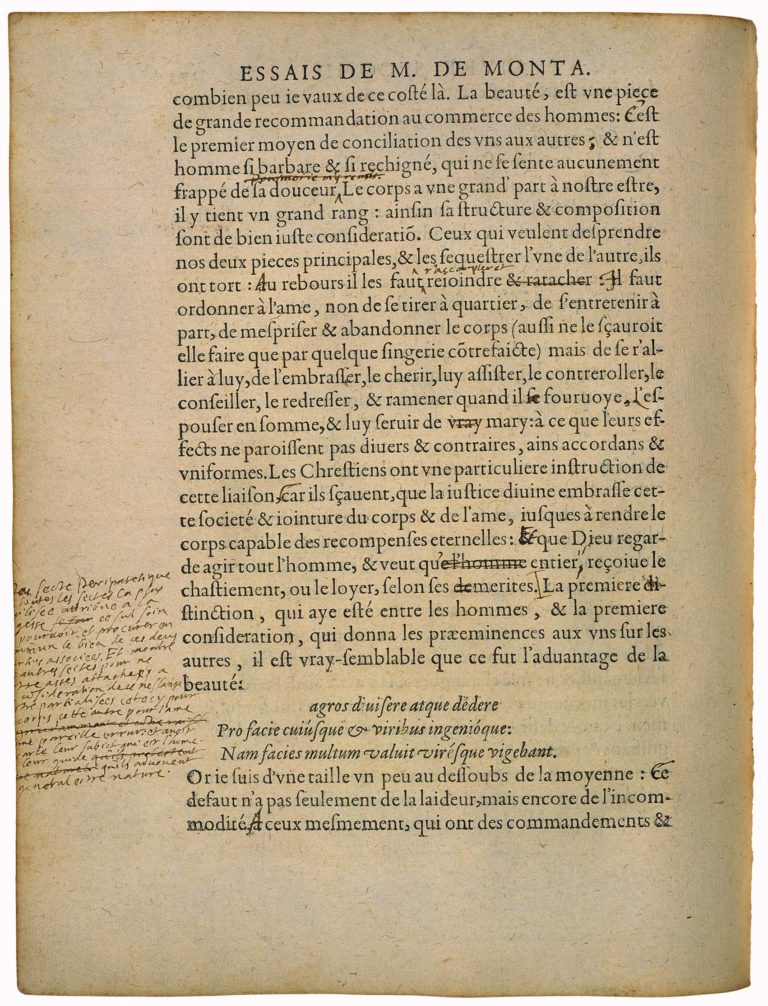 ESSAIS DE M. DE MONTA.
combien peu ie vaux de ce coſté là. La beauté, eſt vne piece
de grande recommandation au commerce des hommes: C'eſt
le premier moyen de conciliation des vns aux autres; & n'eſt
homme ſi barbare & ſi rechigné, qui ne ſe ſente aucunement
frappé de ſa douceur. Le corps a vne grand' part à noſtre eſtre,
il y tient vn grand rang : ainſin ſa ſtructure & compoſition
ſont de bien iuſte conſideratiō. Ceux qui veulent deſprendre
nos deux pieces principales, & les ſequeſtrer l'vne de l'autre, ils
r'accoupler et
ont tort : Au rebours il les faut reioindre & ratacher : Il faut
ordonner à l'ame, non de ſe tirer à quartier, de ſ'entretenir à
part, de meſpriſer & abandonner le corps (auſſi ne le ſçauroit
elle faire que par quelque ſingerie cōtrefaicte) mais de ſe r'al-
lier à luy, de l'embraſſer, le cherir, luy aſſiſter, le contreroller, le
conſeiller, le redreſſer, & ramener quand il ſe fouruoye, L'eſ-
pouſer en ſomme, & luy ſeruir de vray mary: à ce que leurs ef-
fects ne paroiſſent pas diuers & contraires, ains accordans &
vniformes. Les Chreſtiens ont vne particuliere inſtruction de
cette liaiſon, car ils ſçauent, que la iuſtice diuine embraſſe cet-
te ſocieté & iointure du corps & de l'ame, iuſques à rendre le
corps capable des recompenſes eternelles: & que Dieu regar-
de agir tout l'homme, & veut que l'homme entier, reçoiue le
chaſtiement, ou le loyer, ſelon ſes demerites. La premiere di-
ſtinction, qui aye eſté entre les hommes, & la premiere
conſideration, qui donna les præeminences aux vns ſur les
autres, il eſt vray-ſemblable que ce fut l'aduantage de la
beauté:
agros diuiſere atque dedere
Pro facie cuiúſque & viribus ingenióque:
Nam facies multum valuit viréſque vigebant.
Or ie ſuis d'vne taille vn peu au deſſoubs de la moyenne : Ce
defaut n'a pas ſeulement de la laideur, mais encore de l'incom-
modité A ceux meſmement, qui ont des commandements &
La secte Peripatetique
toutes les sectes la plus
attribue a la
ce sul soin
pourvoir et procurer en
le bien de ces deus
associees. Et montre
autres sectes pour ne
asses attachees a
consideration de ce meslange
partialisees cetecy pour
corps cette autre pour l'ame
erreur et avoir
leur subiet qui est l'home
leur guide
qu'ils advouent
general estre nature.